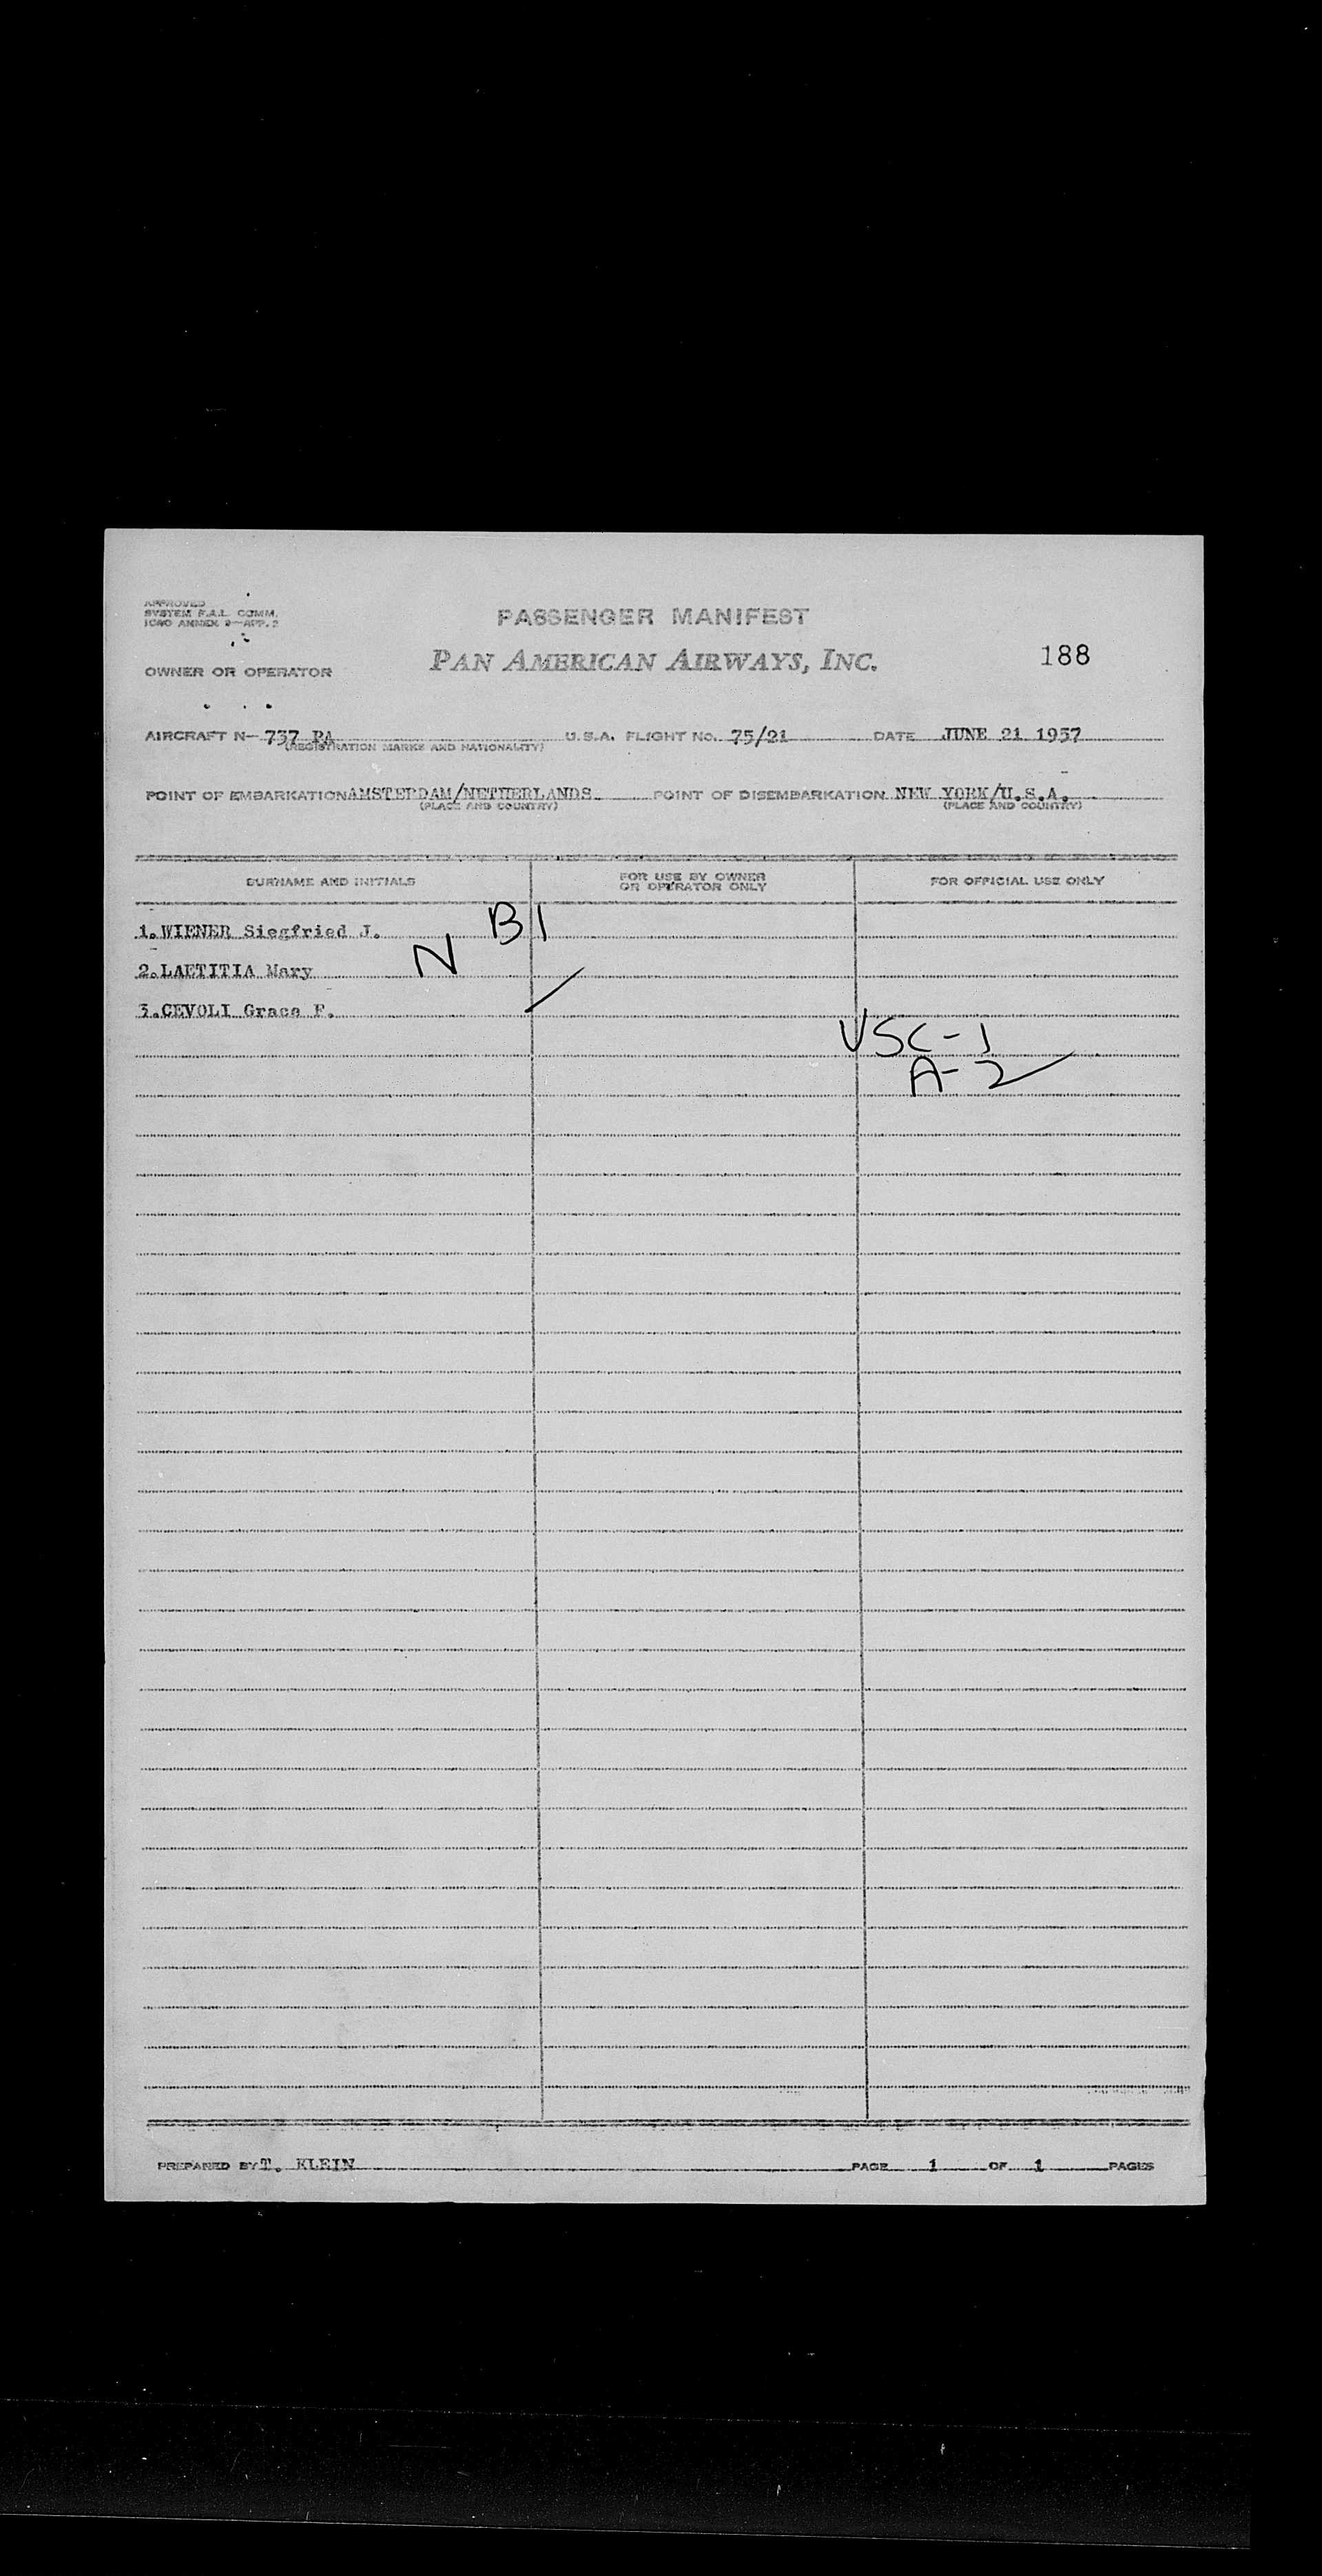 APPROVED
SYSTEM F.A.L. COMM.
ICAO ANNEX 9—APP. 2
PASSENGER MANIFEST
OWNER OR OPERATOR
PAN AMERICAN AIRWAYS, INC.
188
AIRCRAFT N- 737 PA U.S.A. FLIGHT No. 75/21 DATE JUNE 21 1957
(REGISTRATION MARKS AND NATIONALITY)
POINT OF EMBARKATION AMSTERDAM/NETHERLANDS. POINT OF DISEMBARKATION NEW YORK/U.S.A.
(PLACE AND COUNTRY) (PLACE AND COUNTRY)
SURNAME AND INITIALS FOR USE BY OWNER OR OPERATOR ONLY FOR OFFICIAL USE ONLY
1. WIENER Siegfried J. B1
2. LAETITIA Mary N
3. CEVOLI Grace F.
USC-1
A-2
PREPARED BY T. KLEIN PAGE 1 OF 1 PAGES